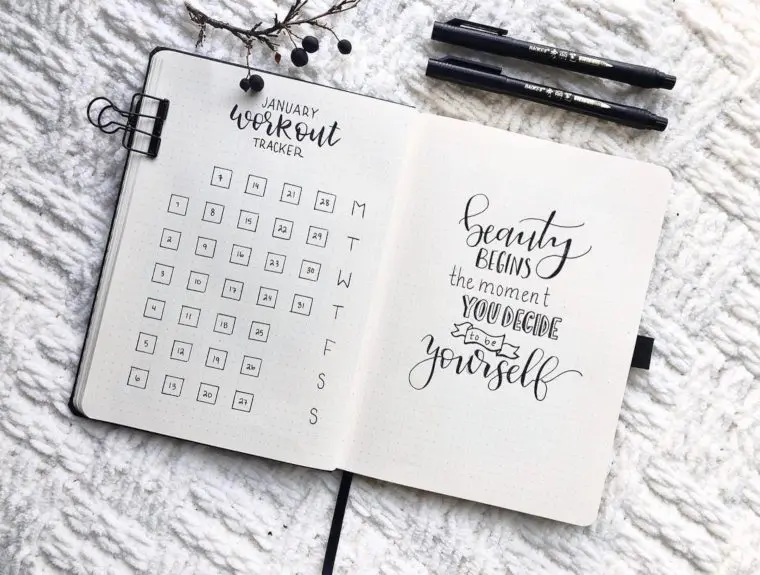 JANUARY
workout
TRACKER
7 14 21 28 M
1 8 15 22 29 T
2 9 16 23 30 W
3 10 17 24 31 T
4 11 18 25 F
5 12 19 26 S
6 13 20 27 S
beauty
BEGINS
the moment
YOU DECIDE
to be
yourself